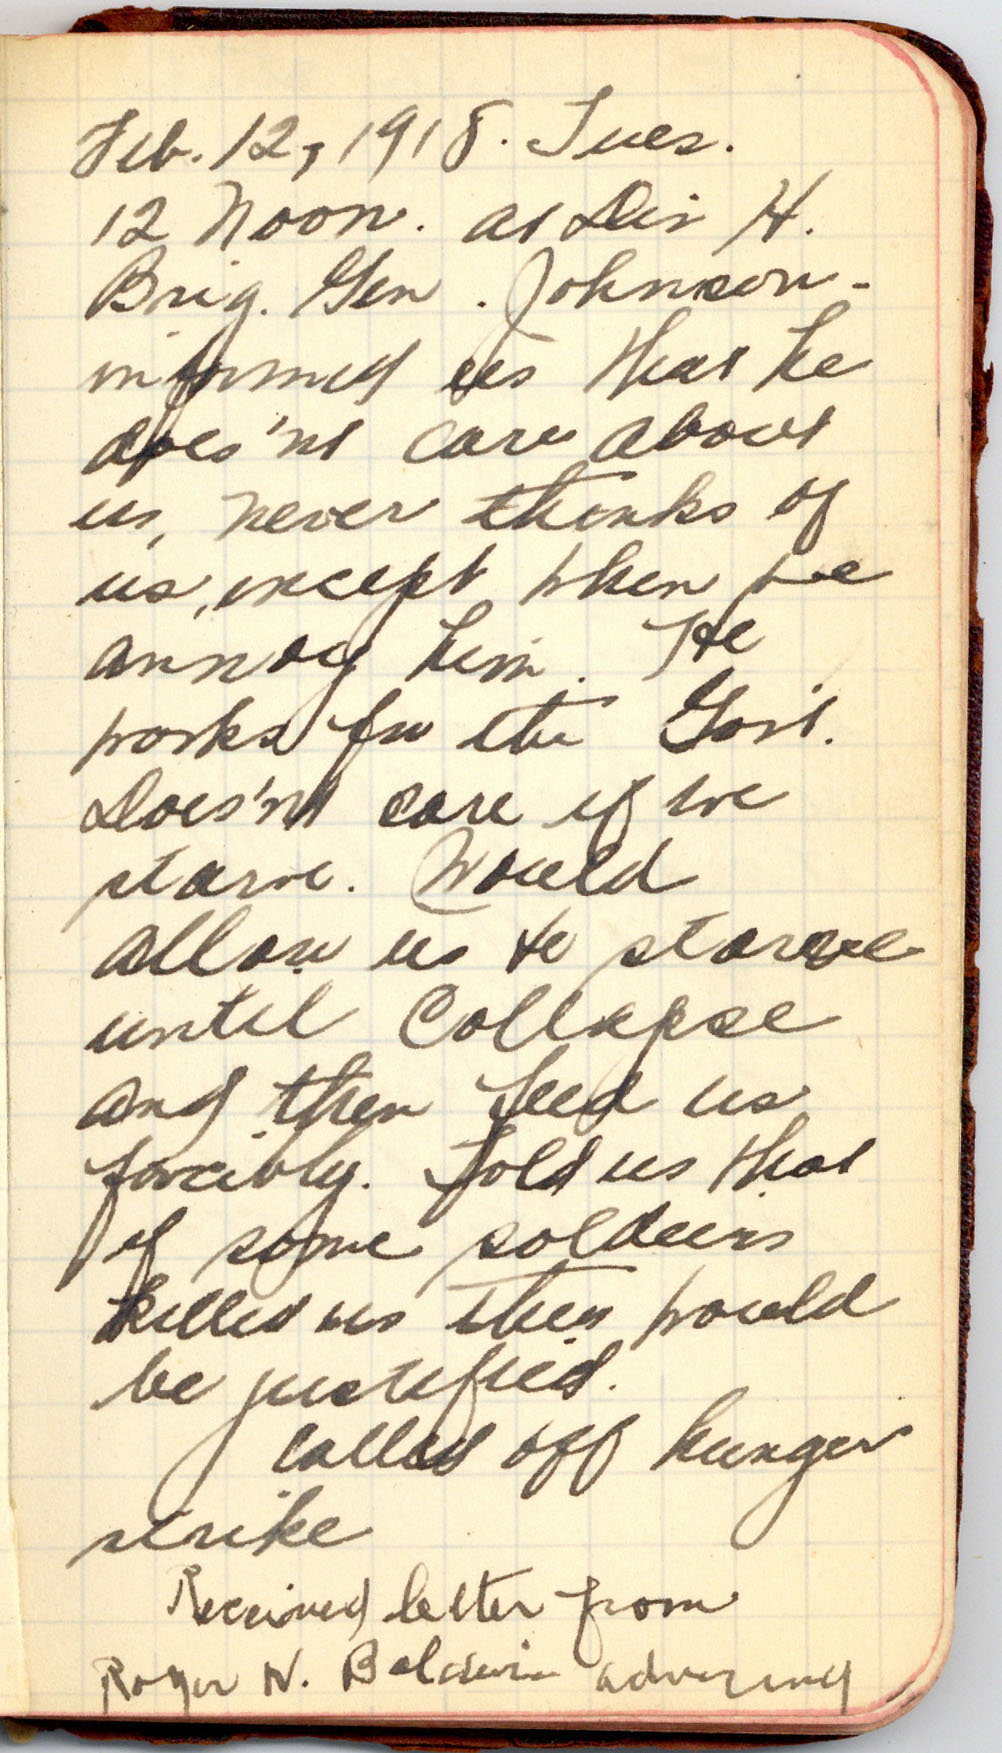 Feb. 12, 1918. Tues.
12 Noon. at Div H.
Brig. Gen. Johnson -
informed us that he
does'nt care about
us, never thinks of
us, except when we
annoy him. He
works for the Gov't.
Does'nt care if we
starve. Would
allow us to starve
until collapse
and then feed us
forcibly. Told us that
if some soldiers
killed us they would
be justified.
Called off hunger
strike
Received letter from
Roger N. Baldwin advising